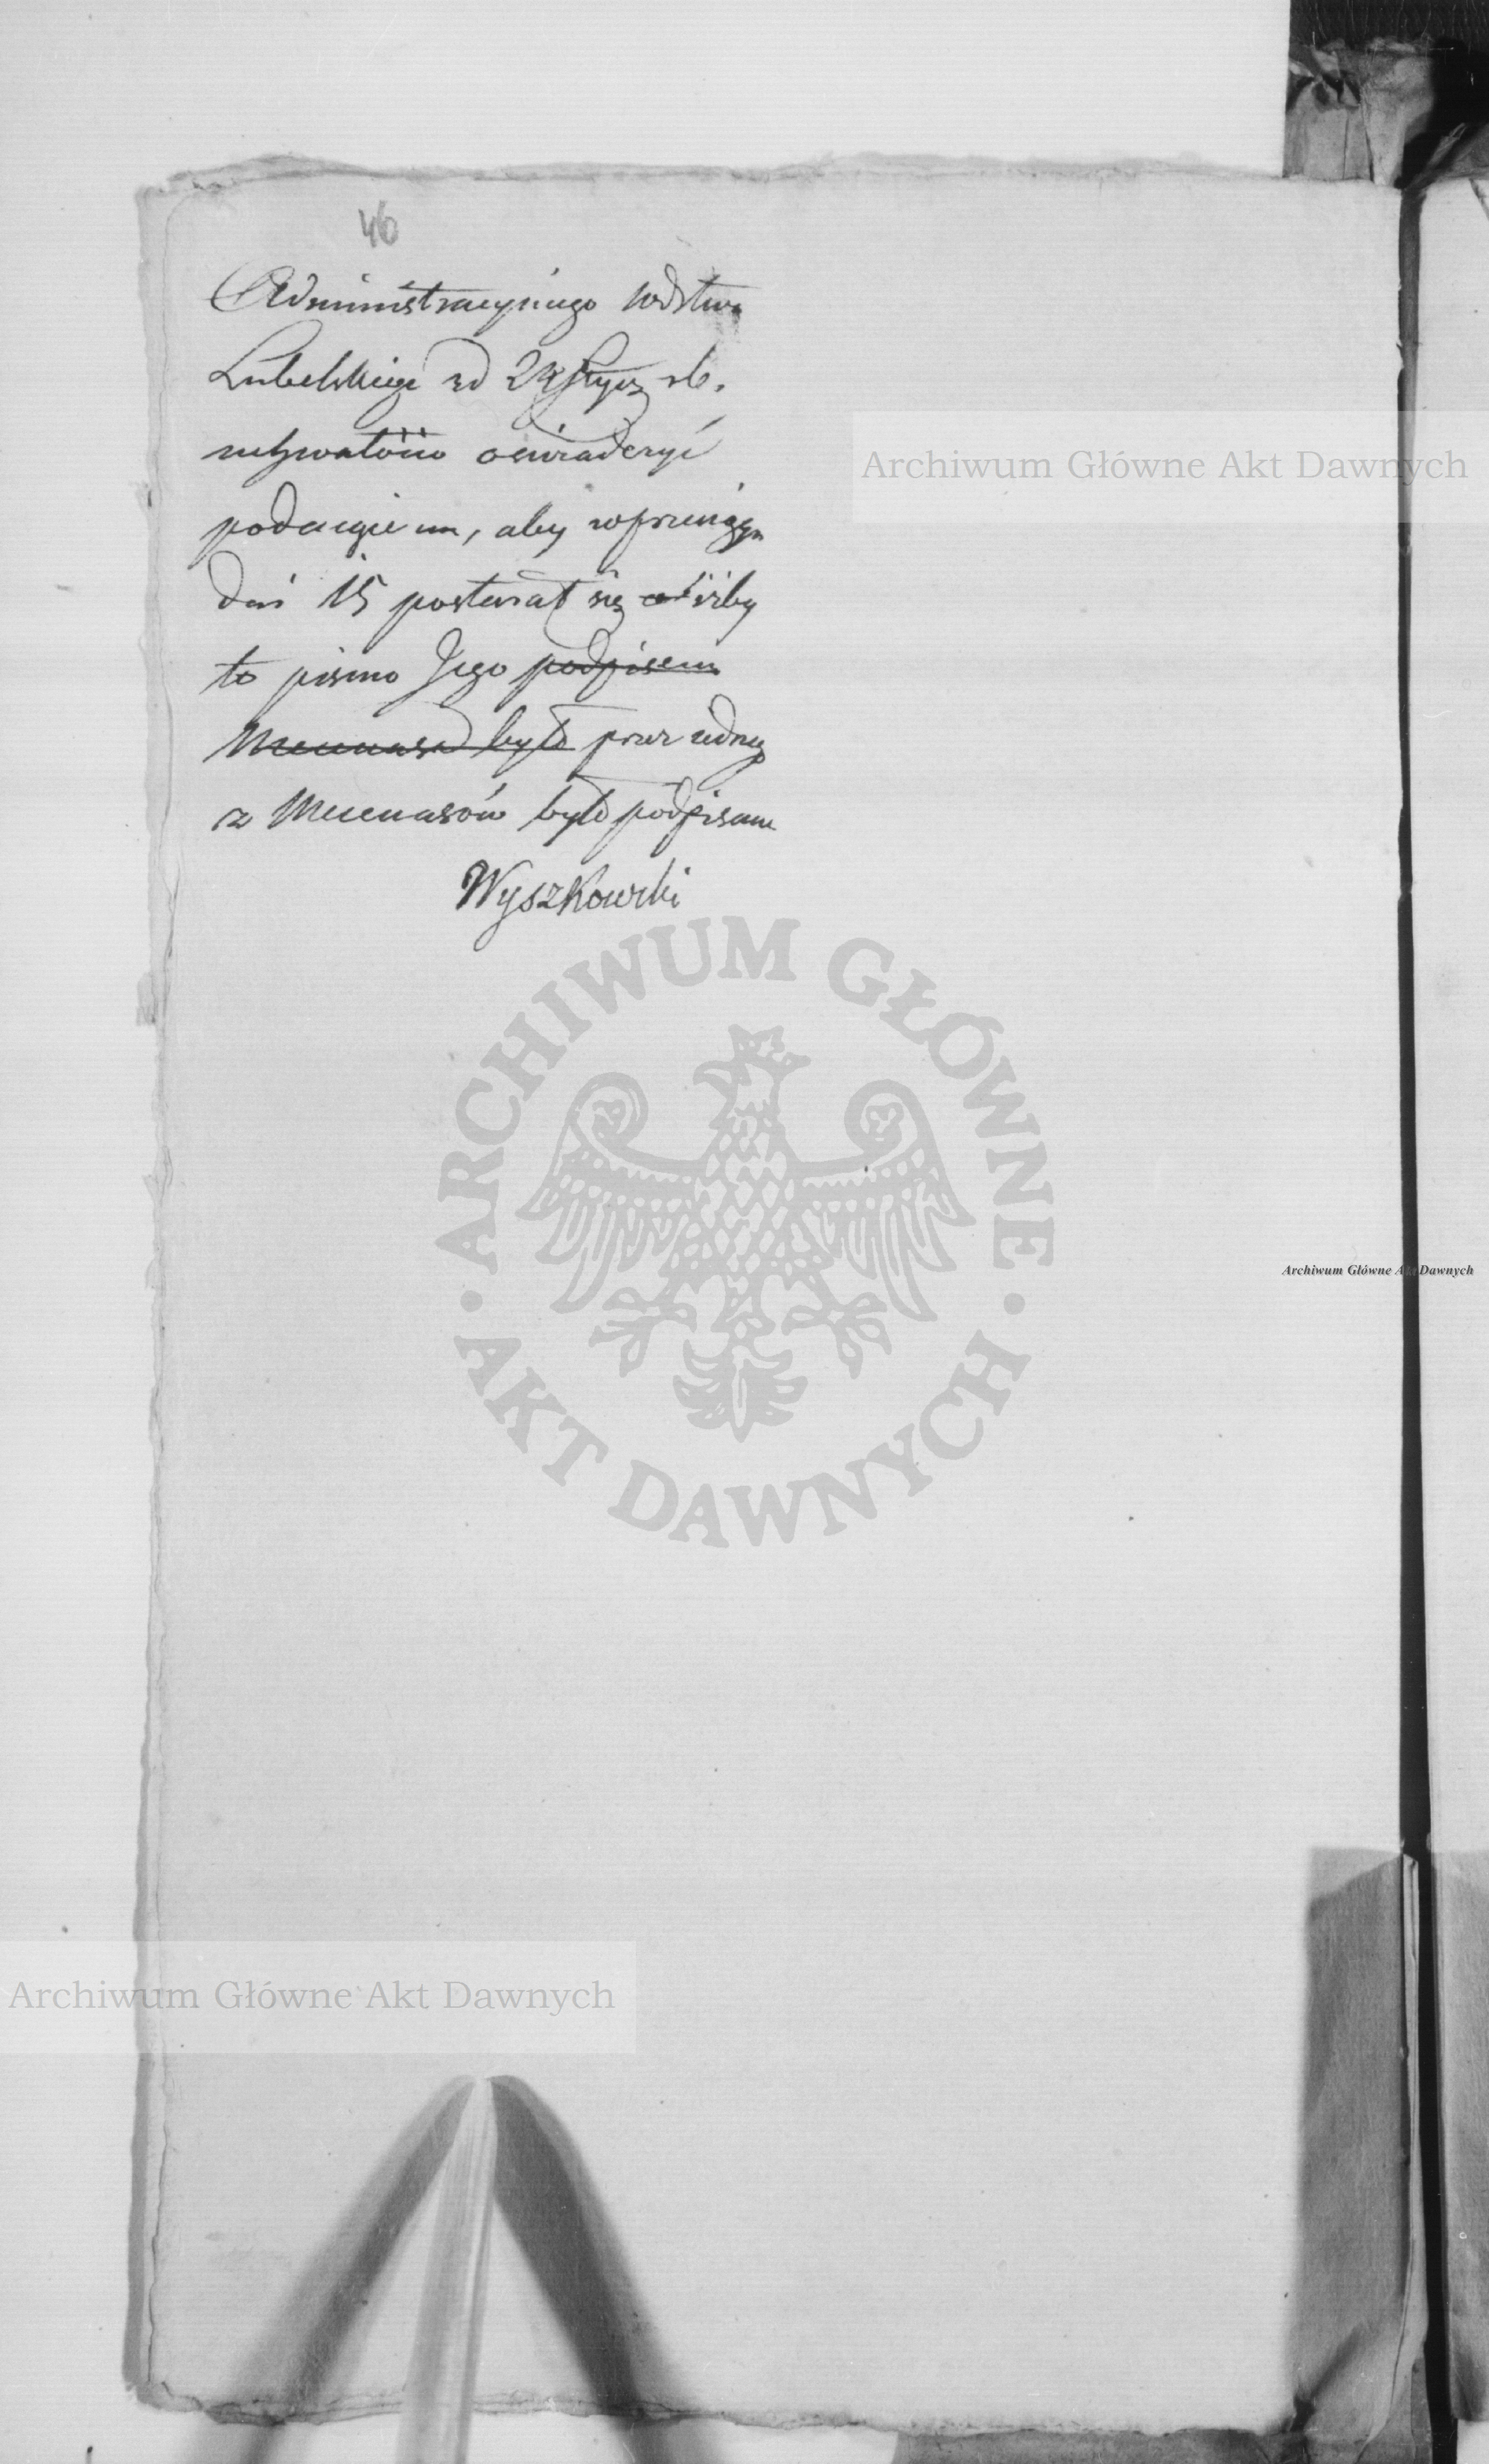 46
Administracyinego wdztwa
Lubelskiego od 24 Stycz rb.
oświadczyć
podaiącem, aby w przeciągu
dni 15 postarał się aż iżby
to pismo Jego podpisem
Mecenasa było przez iednego
z Mecenasów było podpisane
Wyszkowski
Archiwum Główne Akt Dawnych
ARCHIWUM GŁÓWNE
AKT DAWNYCH
Archiwum Główne Akt Dawnych
Archiwum Główne Akt Dawnych